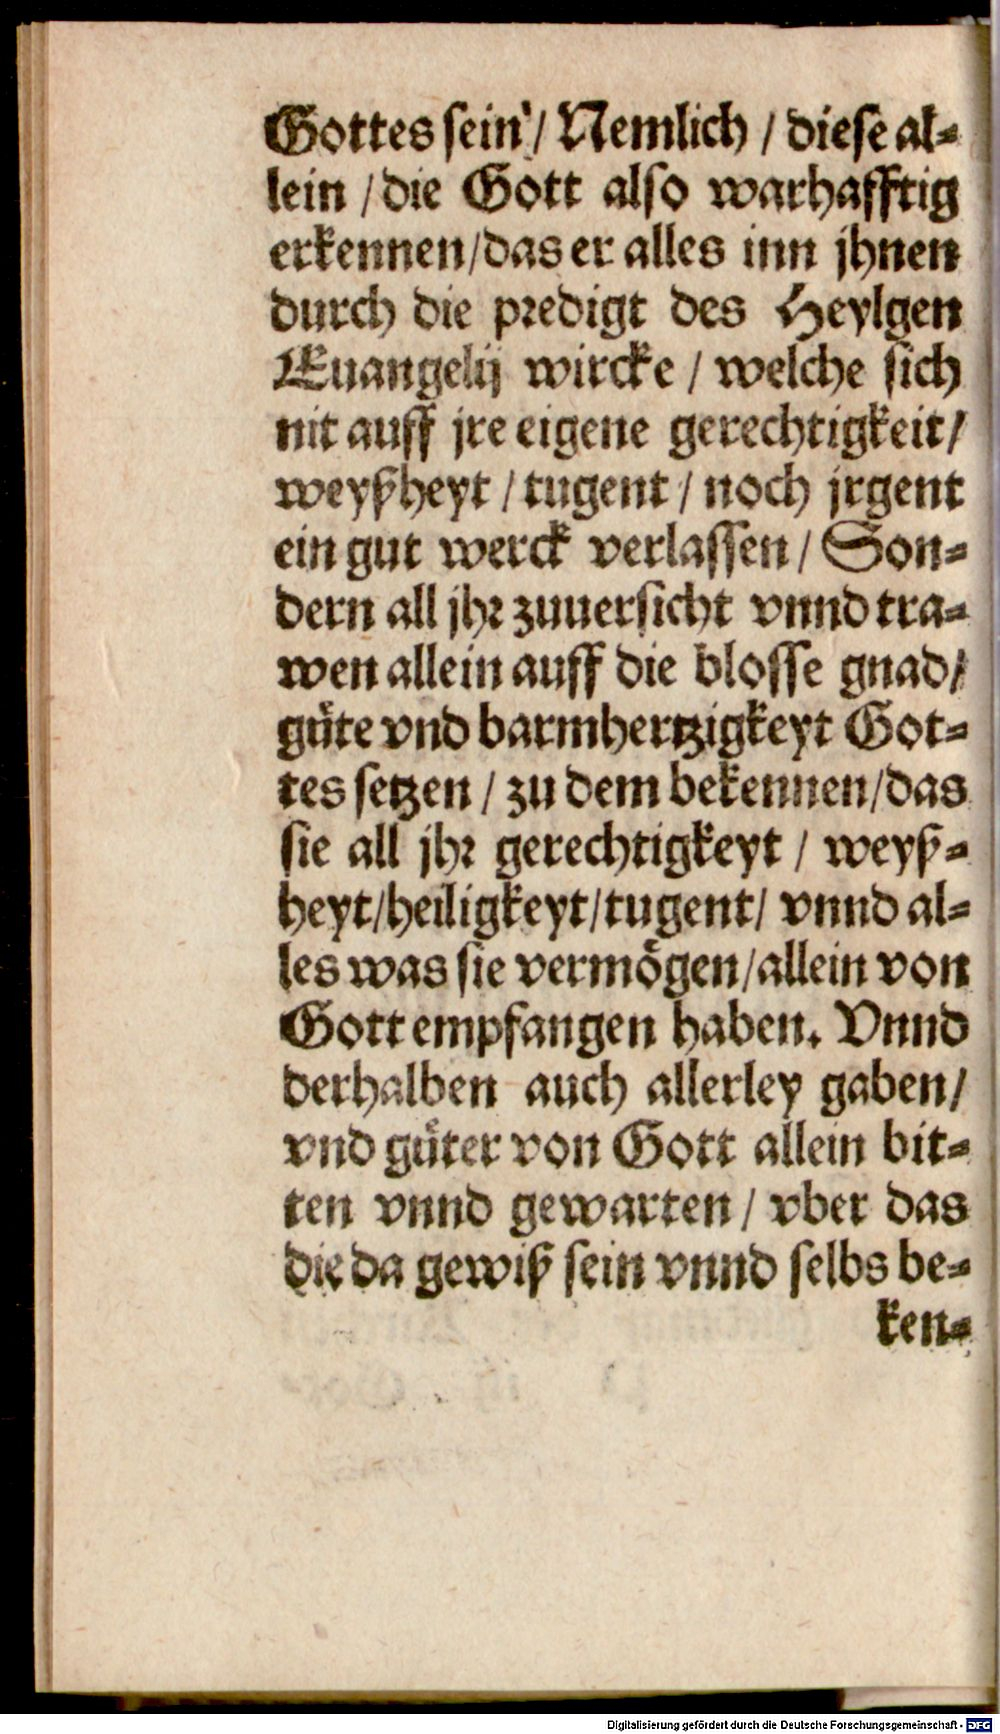 Gottes sein / Nemlich / diese al-
lein / die Gott also warhafftig
erkennen / das er alles inn jhnen
durch die predigt des Heylgen
Euangelij wircke / welche sich
nit auff jre eigene gerechtigkeit /
weyßheyt / tugent / noch jrgent
ein gut werck verlassen / Son-
dern all jhr zuuersicht vnnd tra-
wen allein auff die blosse gnad /
guͤte vnd barmhertzigkeyt Got-
tes setzen / zu dem bekennen / das
sie all jhr gerechtigkeyt / weyß-
heyt / heiligkeyt / tugent / vnnd al-
les was sie vermoͤgen / allein von
Gott empfangen haben. Vnnd
derhalben auch allerley gaben /
vnd guͤter von Gott allein bit-
ten vnnd gewarten / vber das
die da gewiß sein vnnd selbs be-
ken-
Digitalisierung gefördert durch die Deutsche Forschungsgemeinschaft - DFG